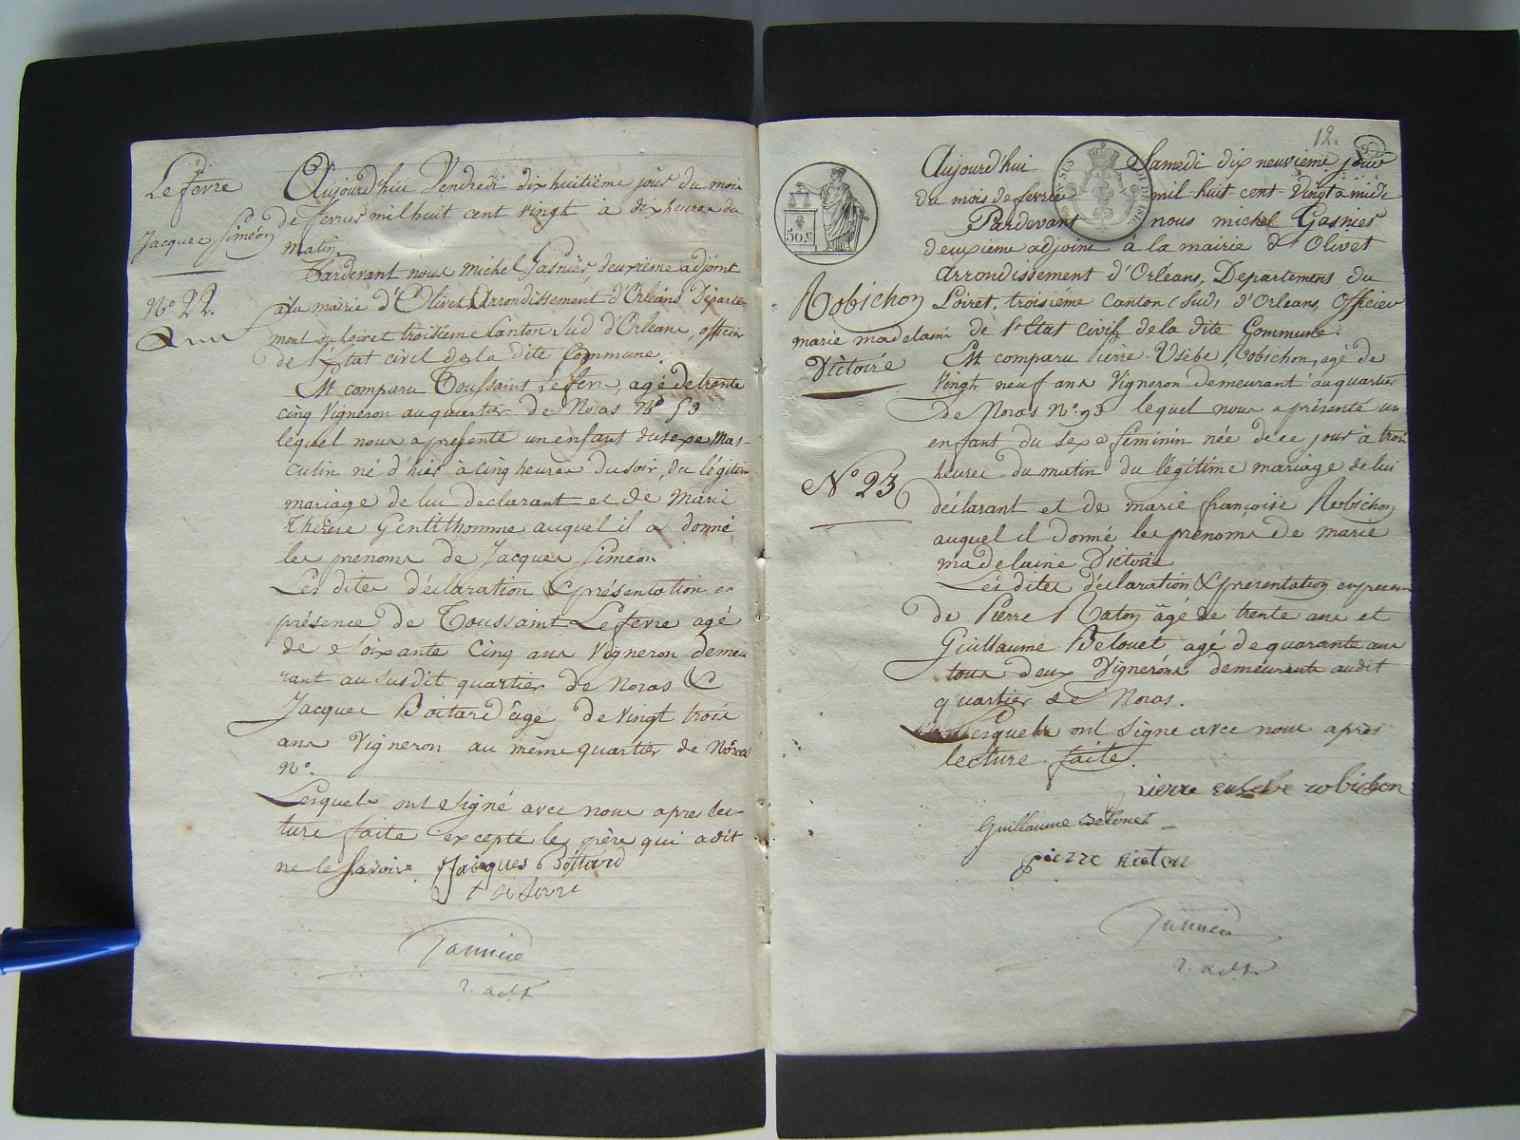 Lefevre
Jacques Siméon
N° 22.
Aujourd'hui Vendredi dix huitième jour du mois
de fevrier mil huit cent vingt à dix heures du
matin
Pardevant nous Michel Gasnier, deuxième adjoint
a la mairie d'Olivet Arrondissement d'Orléans Départe-
ment du loiret troisième Canton Sud d'Orleans, officier
de l'État civil de la dite Commune.
Est comparu Toussaint Lefevre, agé de trente
cinq Vigneron au quartier de Noras N° 53
lequel nous a présenté un enfant du sexe Mas-
culin né d'hier à cinq heures du soir, du légitime
mariage de lui declarant et de Marie
Thérèse Gentilhomme auquel il a donné
les prenoms de Jacques Siméon
Les dites déclaration & présentation en
présence de Toussaint Lefevre agé
de soixante Cinq ans Vigneron demeu
rant au susdit quartier de Noras &
Jacques Boitard âgé de vingt trois
ans Vigneron au même quartier de Noras
N°.
Lesquels ont signé avec nous apres lec-
ture faite excepté le père qui a dit
ne le savoir. Jacques Boitard
t lefevre
2. adjt
12.
50 c
Robichon
marie madelaine
Victoire
N° 23
Aujourd'hui Samedi dix neuvieme jour
du mois de fevrier mil huit cent vingt a midi
Pardevant nous michel Gasnier
deuxième adjoint a la mairie d'Olivet
Arrondissement d'Orleans, Departement du
Loiret, troisiéme Canton (Sud) d'Orleans, Officier
de l'Etat civil de la dite Commune.
Est comparu Pierre Usébe Robichon, agé de
vingt neuf ans Vigneron demeurant au quartier
de Noras N° 93 lequel nous a présenté un
enfant du sexe féminin née de ce jour à trois
heures du matin du légitime mariage de lui
déclarant et de marie françoise Robichon
auquel il donné les prenoms de marie
madelaine Victoire
Les dites déclaration & presentation en presence
de Pierre Raton âgé de trente ans et
Guillaume Belouet agé de quarante ans
tous deux Vignerons demeurants audit
quartier de Noras.
Lesquels ont signé avec nous après
lecture faite.
Pierre eusebe robichon
Guillaume Belouet
pierre
2. adjt